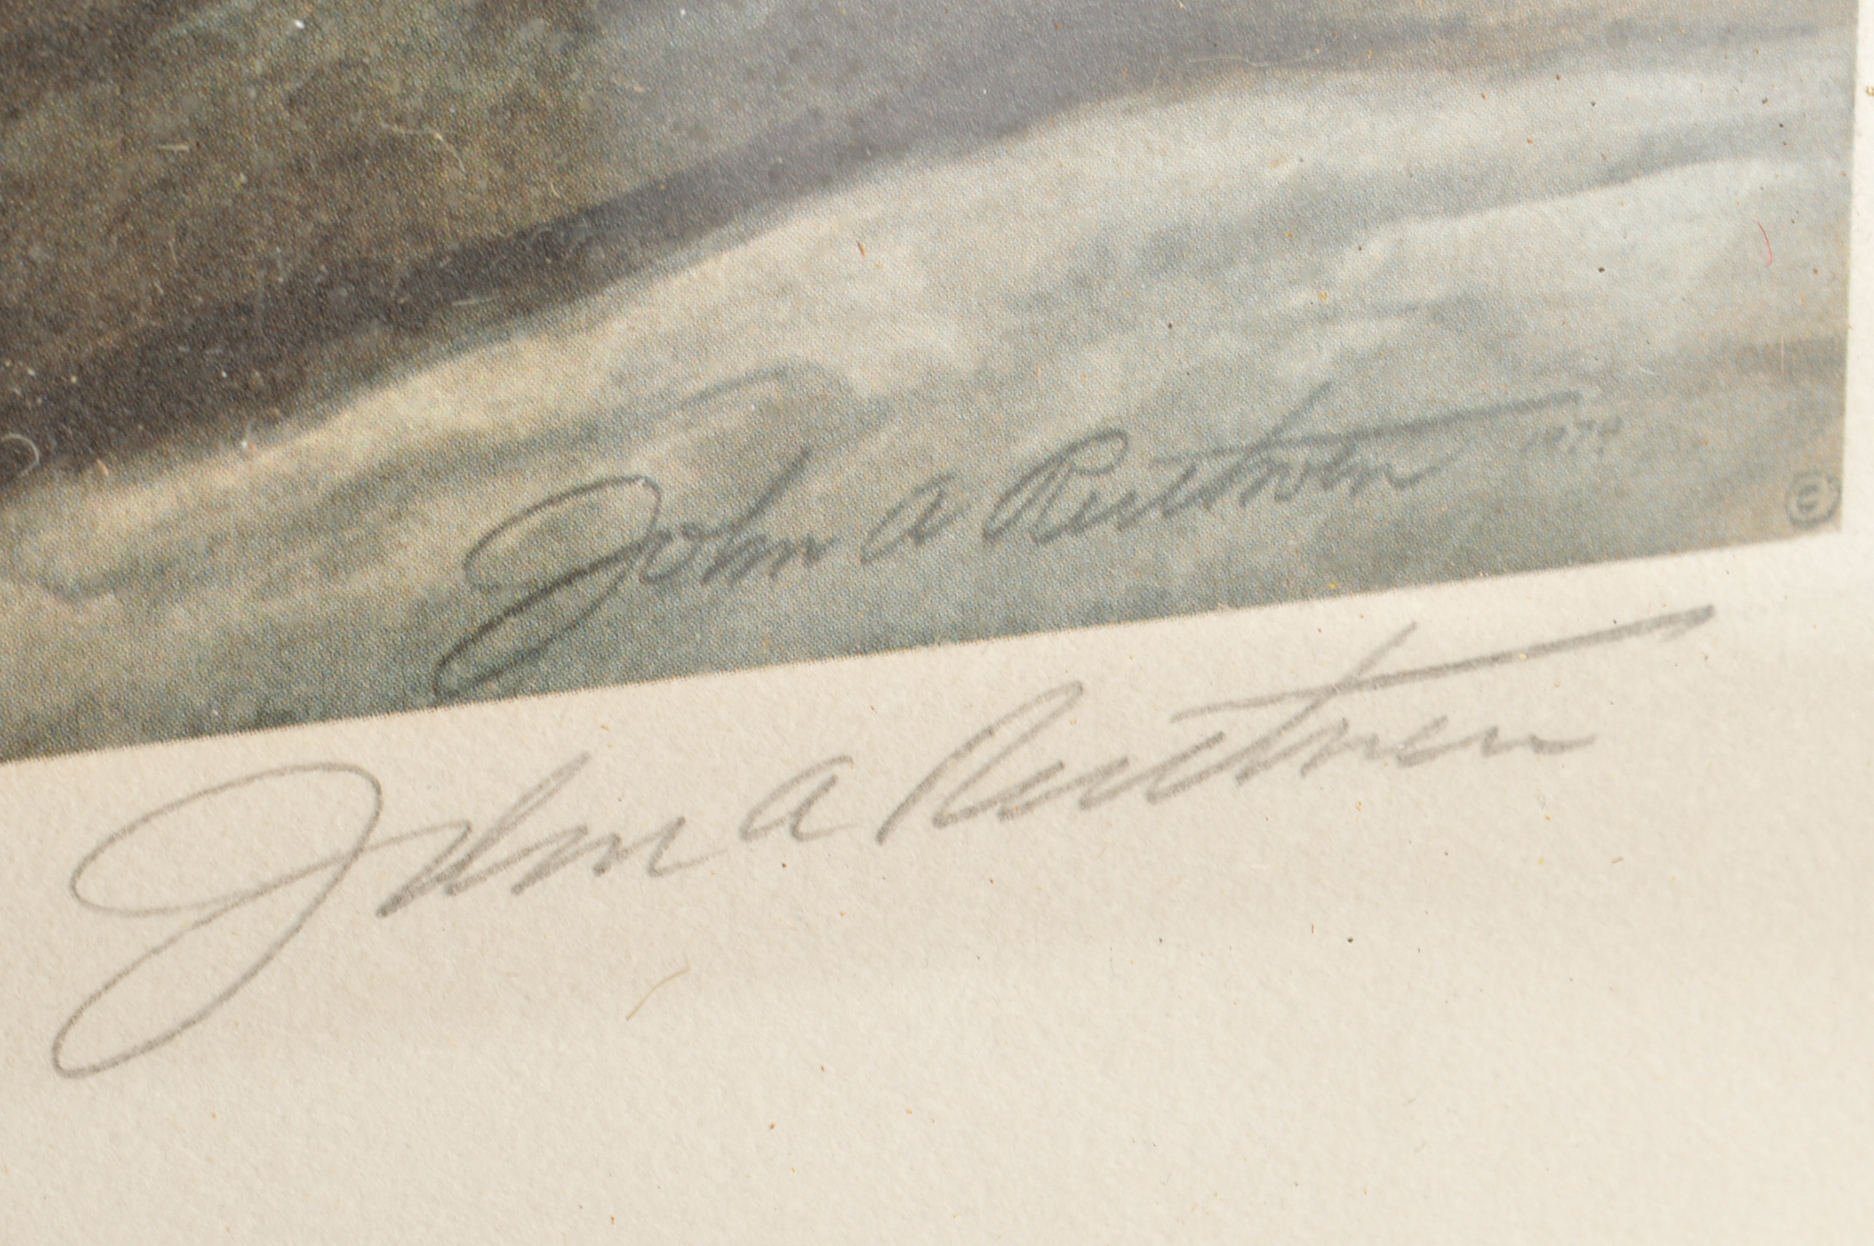 John A Ruthven 1974
©
John A Ruthven